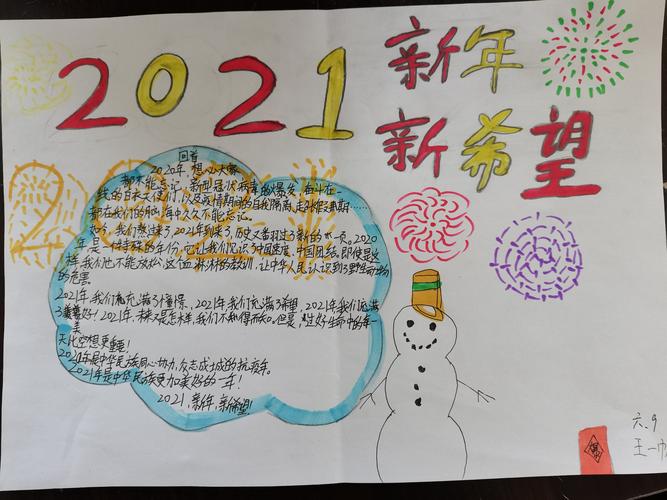 2021
新年
新希望
回首
2020年,想必大家
都不能忘记,新型冠状病毒的爆发,奋斗在一
线的白衣天使们,以及疫情期间的自我隔离,
都在我们的脑海中久久不能忘记。
如今,我们熬来了2021年到来了,历史又翻过了新的一页。2020
年是一个特殊的年份,它让我们见识了中国速度,中国团结。即使是这
样,我们也不能放松,这血淋淋的教训,让中华人民认识到了野生动物
的危害。
2021年,我们充满了憧憬,2021年,我们充满了希望,2021年,我们充满
了美好!2021年,未来又是怎样,我们不知得而知。但是,过好生命中的每一
天比空想更重要!
2021年是中华民族同心协力,众志成城的抗疫年。
2021年是中华民族更加美好的一年!
2021,新年,新希望!
六.9
王一